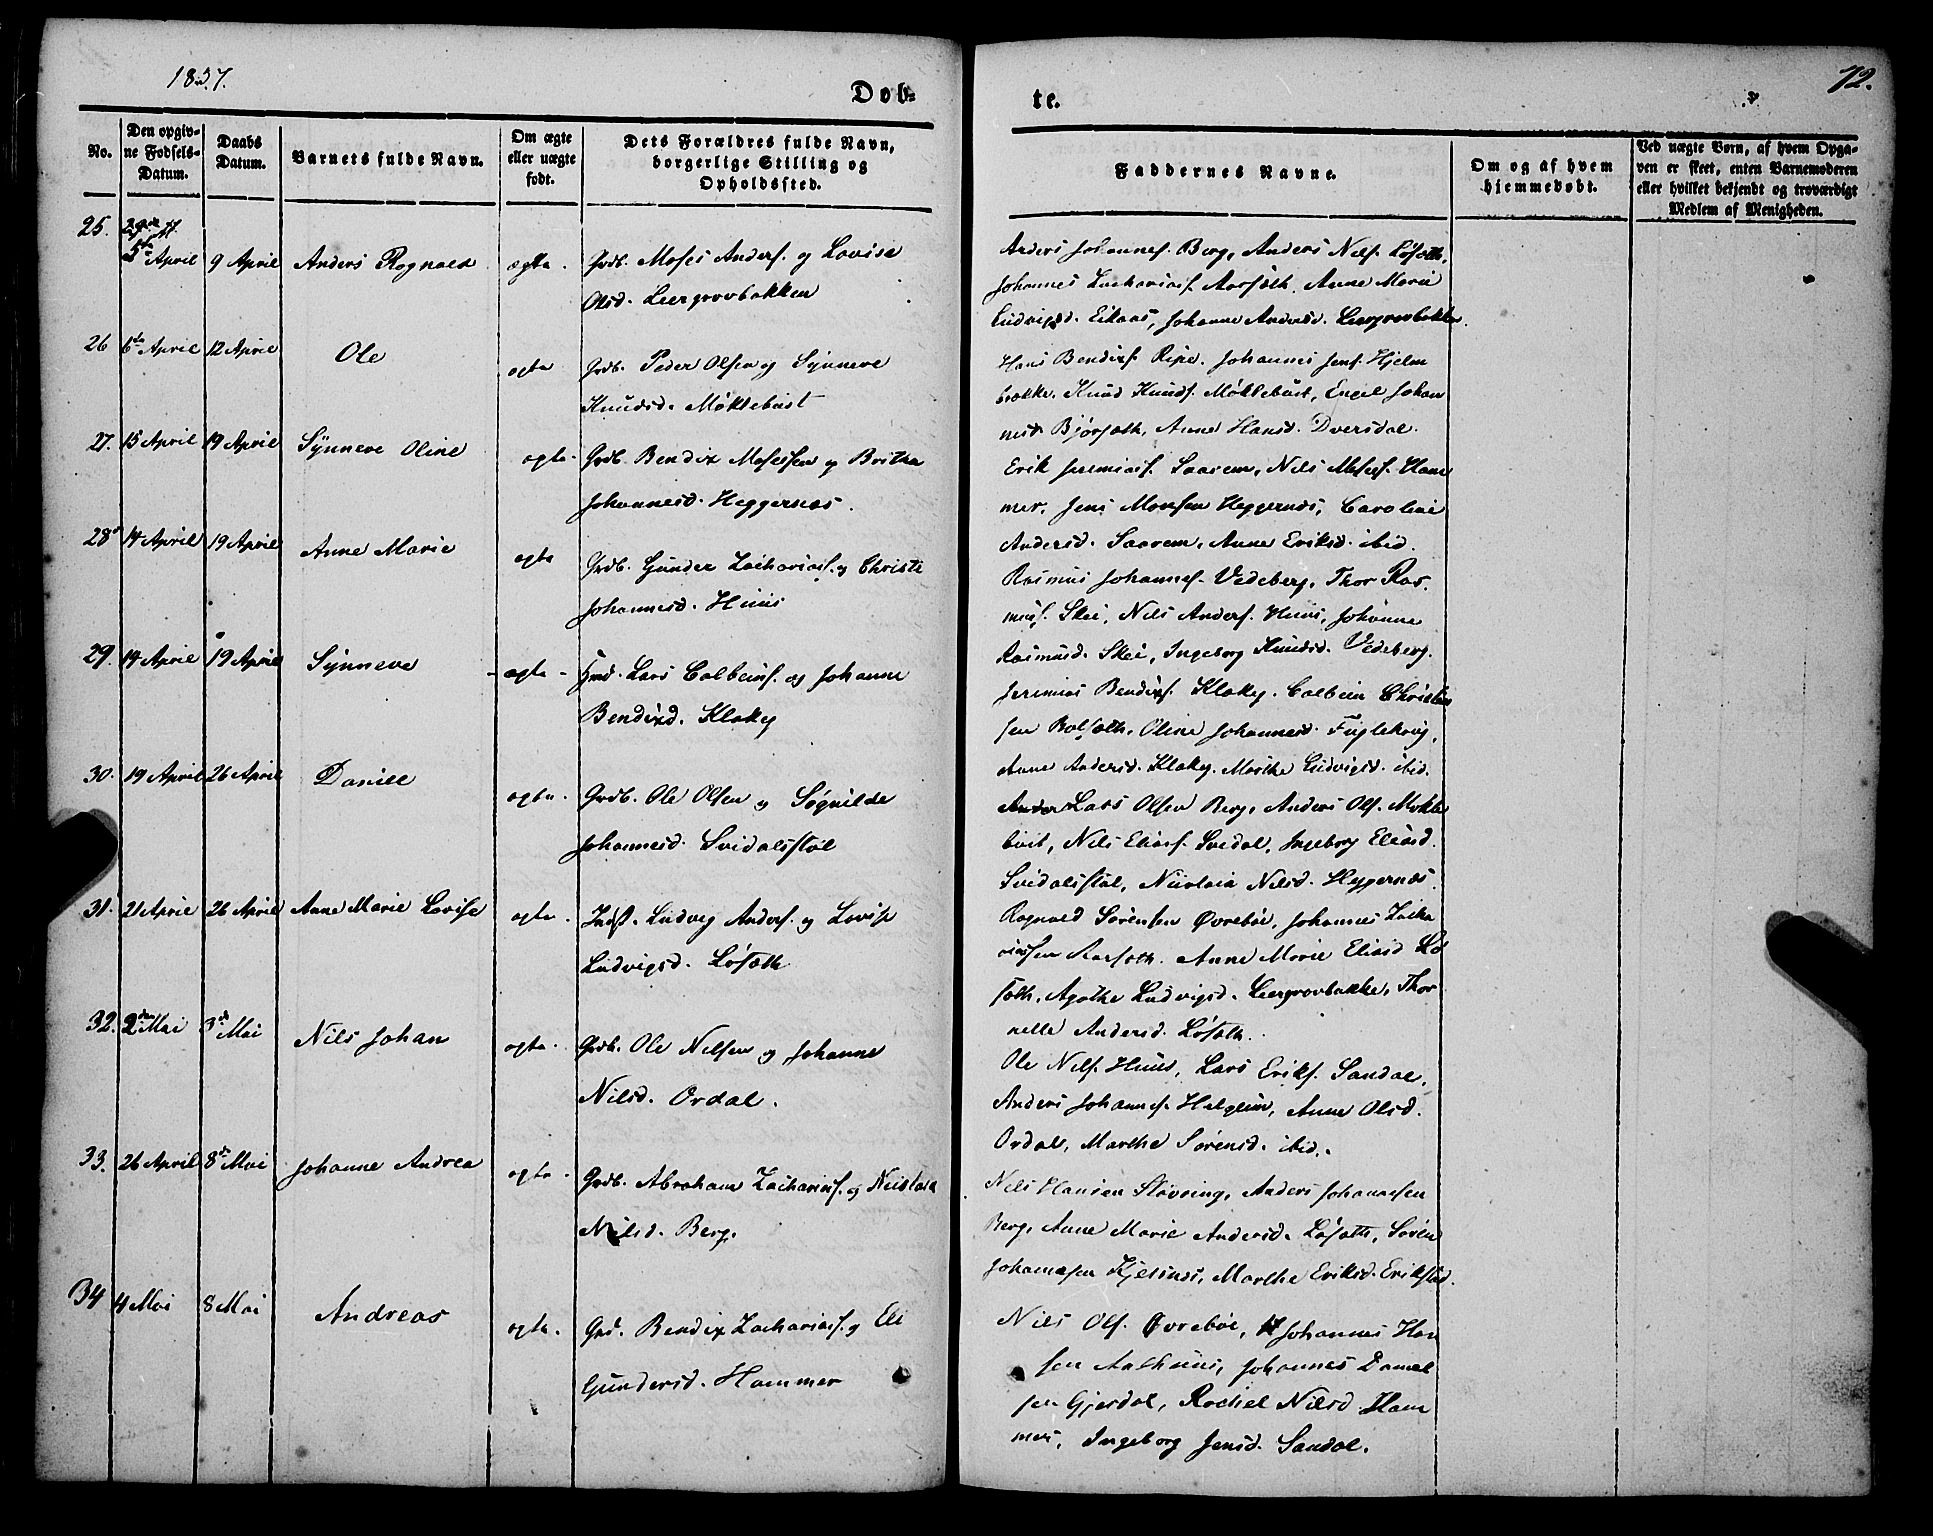 1837.
72.
Døb-
te.
No.
Den opgiv-
ne Fødsels-
Datum.
Daabs
Datum.
Barnets fulde Navn.
Om ægte
eller uægte
født.
Dets Forældres fulde Navn,
borgerlige Stilling og
Opholdssted.
Faddernes Navne.
Om og af hvem
hjemmedøbt.
Ved uægte Børn, af hvem Opga-
ven er skeet, enten Barnemoderen
eller hvilket bekjendt og troværdigt
Medlem af Menigheden.
25.
5te April 9 April Anders Rognald ægte. Grdb. Moses Anders. og Lovise
Olsd. Leergrovbakken
Anders Johannes. Berg, Anders Nils. Løsæth,
Johannes Zacharias. Aarsæth, Anne Marie
Ludvigsd. Eikaas, Johanne Andersd. Leergrovbakke.
26 6te April 12 April Ole ægte Grdb. Peder Olsen og Synneve
Knudsd. Møklebust
Hans Bendix. Ripe, Johannes Jens. Hjelm
brække, Knud Knuds. Møklebust, Engel Johan
nesd. Bjørsæth, Anne Hansd. Dversdal.
27. 15 April 19 April Synneve Oline ægte. Grdb. Bendix Mosessen og Britha
Johannesd. Heggernæs.
Erik Jeremias. Saarem, Nils Moses. Ham
mer, Jens Monsen Heggernæs, Caroline
Andersd. Saarem, Anne Eriksd. ibid.
28 14 April 19 April Anne Marie ægte Grdb. Gunder Zacharias. og Christe
Johannesd. Huus
Rasmus Johannes. Vedeberg, Thor Ras
mus. Skei, Nils Anders. Huus, Johanne
Rasmusd. Skei, Ingeborg Knudsd. Vedeberg.
29. 14 April 19 April Synneve ægte Hmd. Lars Colbeins. og Johanne
Bendixd. Klakeg
Jeremias Bendix. Klakeg, Colbein Christen
sen Bolsæth, Oline Johannesd. Fuglehoug,
Anne Andersd. Klakeg, Marthe Ludvigsd. ibid.
30. 19 April 26 April Daniel ægte. Grdb. Ole Olsen og Søgnilde
Johannesd. Svidalsstøl
Lars Olsen Berg, Anders Ols. Møkle
bust, Nils Elias. Svidal, Ingeborg Eliasd.
Svidalsstøl, Nicolaia Nilsd. Heggernæs.
31. 21 April 26 April Anne Marie Lovise ægte. Indst. Ludvig Anders. og Lovise
Ludvigsd. Løsæth
Rognald Sørensen Øvrebøe, Johannes Zacha
riassen Aarsæth, Anne Marie Eliasd. Lø
sæth, Agathe Ludvigsd. Leergrovbakke, Thor
nelle Andersd. Løsæth.
32. 2den Mai 3de Mai Nils Johan ægte. Grdb. Ole Nilsen og Johanne
Nilsd. Ordal.
Ole Nils. Huus, Lars Eriks. Sandal,
Anders Johannes. Helgeim, Anne Olsd.
Ordal, Marthe Sørensd. ibid.
33. 26 April 8de Mai Johanne Andrea ægte. Grdb. Abraham Zacharias. og Nicolaia
Nilsd. Berg.
Nils Hansen Støvring, Anders Johannessen
Berg, Anne Marie Andersd. Løsæth, Søren
Johannesen Kjelsnes, Marthe Eriksd. Erikstad.
34 4 Mai 8 Mai Andreas ægte. Grd. Bendix Zacharias. og Eli
Gundersd. Hammer
Nils Ols. Øvrebøe, Johannes Han
sen Aalhuus, Johannes Daniel
sen Gjesdal, Rachel Nilsd. Ham
mer, Ingeborg Jensd. Sandal.